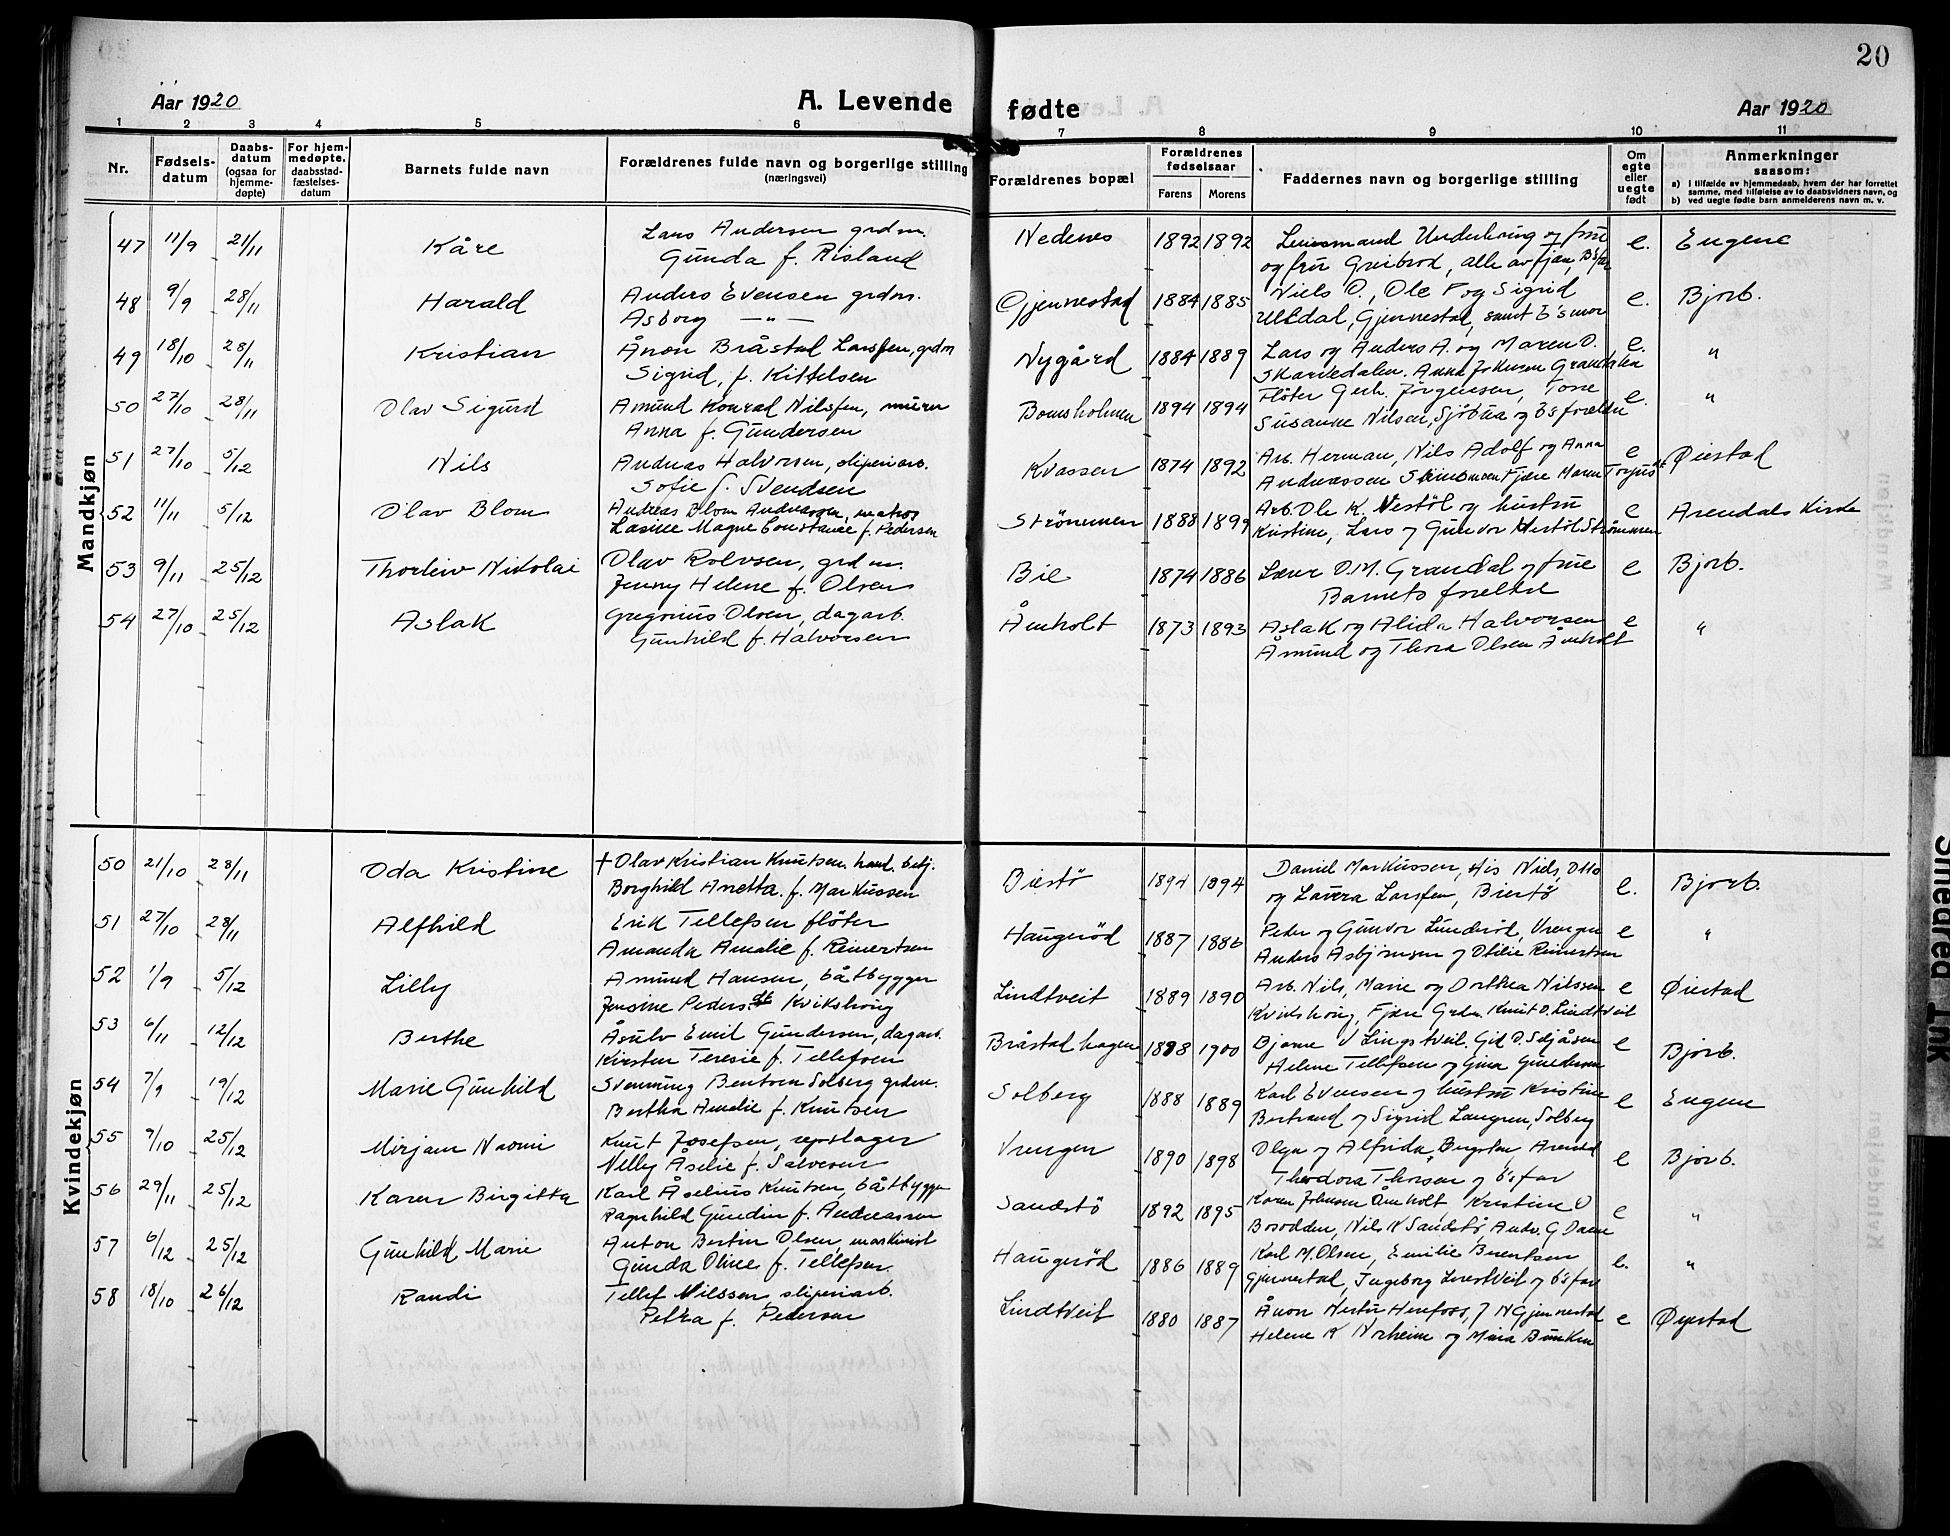 20
Aar 1920
A. Levende fødte
Aar 1920
1 2 3 4 5 6 7 8 9 10 11
Nr.
Fødsels-
datum
Daabs-
datum
(ogsaa for
hjemme-
døpte)
For hjem-
medøpte.
daabsstad-
fæstelses-
datum
Barnets fulde navn
Forældrenes fulde navn og borgerlige stilling
(næringsvei)
Forældrenes bopæl
Forældrenes
fødselsaar
Farens Morens
Faddernes navn og borgerlige stilling
Om
egte
eller
uegte
født
Anmerkninger
saasom:
a) i tilfælde av hjemmedaab, hvem der har forrettet
samme, med tilføielse av to daabsvidners navn, og
b) ved uegte fødte barn anmelderens navn m. v.
Mandkjøn
47 11/9 21/11 Kåre Lars Andersen grdm. Nedenes 1892 1892 og frue e. Eugene
Gunda f. Risland og fru Greibrod, alle av Fjære, B's far
48 9/9 28/11 Harald Anders Evensen grdm. Gjennestad 1884 1885 Niels O., Ole F og Sigrid e. Bjorb.
Asborg — " — Uldal, Gjennestad, samt b's mor
49 18/10 28/11 Kristian Ånon Bråstad Larssen, grdm Nygård 1884 1889 Lars og Anders A. og Maren O. e. "
Sigrid, f. Kittelsen Skarvedalen. Anna Johnsen
50 27/10 28/11 Olav Sigurd Amund Konrad Nilssen, murer Bomsholmen 1894 1894 Fløter Gerh. Jørgensen, Tone e. "
Anna f. Gundersen Susanne Nilsen, Sjøbua og b's forældre
51 27/10 5/12 Nils Andreas Halvorsen, sliperiarb. Kvassen 1874 1892 Arb. Herman, Nils Adolf og Anna e Øiestad
Sofie f. Svendsen Andreassen Fjære Maren
52 11/11 5/12 Olav Blom Andreas Blom Andreassen, matros Strømmen 1888 1899 Arb. Ole K. Nestöl og hustru e Arendals Kirke
Lasine Magne Constance f. Pedersen Kristine, Lars og Gunvor Strømmen
53 9/11 25/12 Thorleiv Nikolai Olav Rolvsen, grdm. Bie 1874 1886 Lærer O. M. Grandal og frue e Bjorb.
Jenny Helene f. Olsen Barnets foreldre
54 27/10 25/12 Aslak Gregorius Olsen, dagarb. Åmholt 1873 1893 Aslak og Alida Halvorsen e "
Gunhild f. Halvorsen Åmund og Thora Olsen Åmholt
Kvindekjøn
50 21/10 28/11 Oda Kristine † Olav Kristian Knutsen hand. betj. Biestø 1894 1894 Daniel Markussen, His Niels, Otto e. Bjorb.
Borghild Anetta f. Markussen og Lavera Larssen, Biestø
51 27/10 28/11 Alfhild Erik Tellefsen fløter Haugerød 1887 1886 Peder og Gunvor Lunderød, Vrengen e "
Amanda Amalie f. Reinertsen Anders Asbjørnsen og Otilie Reinertsen
52 1/9 5/12 Lilly Asmund Hansen, båtbygger Lindtveit 1889 1890 Arb. Nils, Marie og Dorthea Nilssen e Øiestad
Jensine Pedersdt Kvikshøug Kvikshöig, Fjære Grdm. Knut O. Lindtveit
53 6/11 12/12 Berthe Åsulv Emil Gundersen, dagarb. Bråstad hagen 1898 1900 Bjarne e Bjorb.
Kirsten Teresie f. Tellefsen Helene Tellefsen og Gina Gundersen
54 7/9 19/12 Marie Gunhild Svenning Bentsen Solberg grdm. Solberg 1888 1889 Karl Evensen og hustru Kristine e Eugene
Bertha Amalie f. Knutsen Bertrand og Sigrid Langren, Solberg
55 9/10 25/12 Mirjam Naomi Knut Josefsen, repslager Vrengen 1890 1898 Olga og Alfrida Bergsten Arendal e Bjorb.
Nelly Åselie f. Salvesen Theodora Thorsen og b's far
56 29/11 25/12 Karen Birgitta Karl Åselius Knutsen, båtbygger Sandstø 1892 1895 Karen Johnsen Åmholt, Kristine O e "
Ragnhild Gundin f. Andreassen Bosodden, Nils N Sandstø, Andr. G Daene
57 6/12 25/12 Gunhild Marie Anton Bertin Olsen, maskinist Haugerød 1886 1889 Karl M. Olsen, Emilie Berntsen e. "
Gunda Oline f. Tellefsen Gjennestad, Ingeborg og b's far
58 18/10 26/12 Randi Tellef Nilssen sliperiarb. Lindtveit 1880 1887 Ånon J N Gjennestad e Øyestad
Petra f. Pedersen Helene K Norheim og Maria Bunken
Smeared Ink